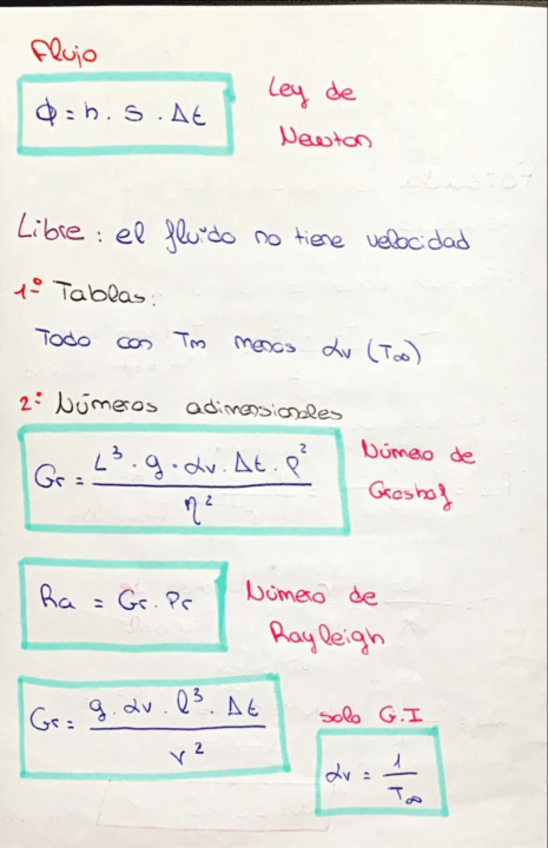 Flujo
ϕ = h . S . Δt
Ley de
Newton
Libre : el fluido no tiene velocidad
1º Tablas:
Todo con Tm menos αv (T∞)
2º Números adimensionales
Gr = L³ · g · αv · Δt · ρ² / η²
Número de
Grashof
Ra = Gr . Pr
Número de
Rayleigh
Gr = g · αv · l³ · Δt / ν²
solo G.I
αv = 1 / T∞